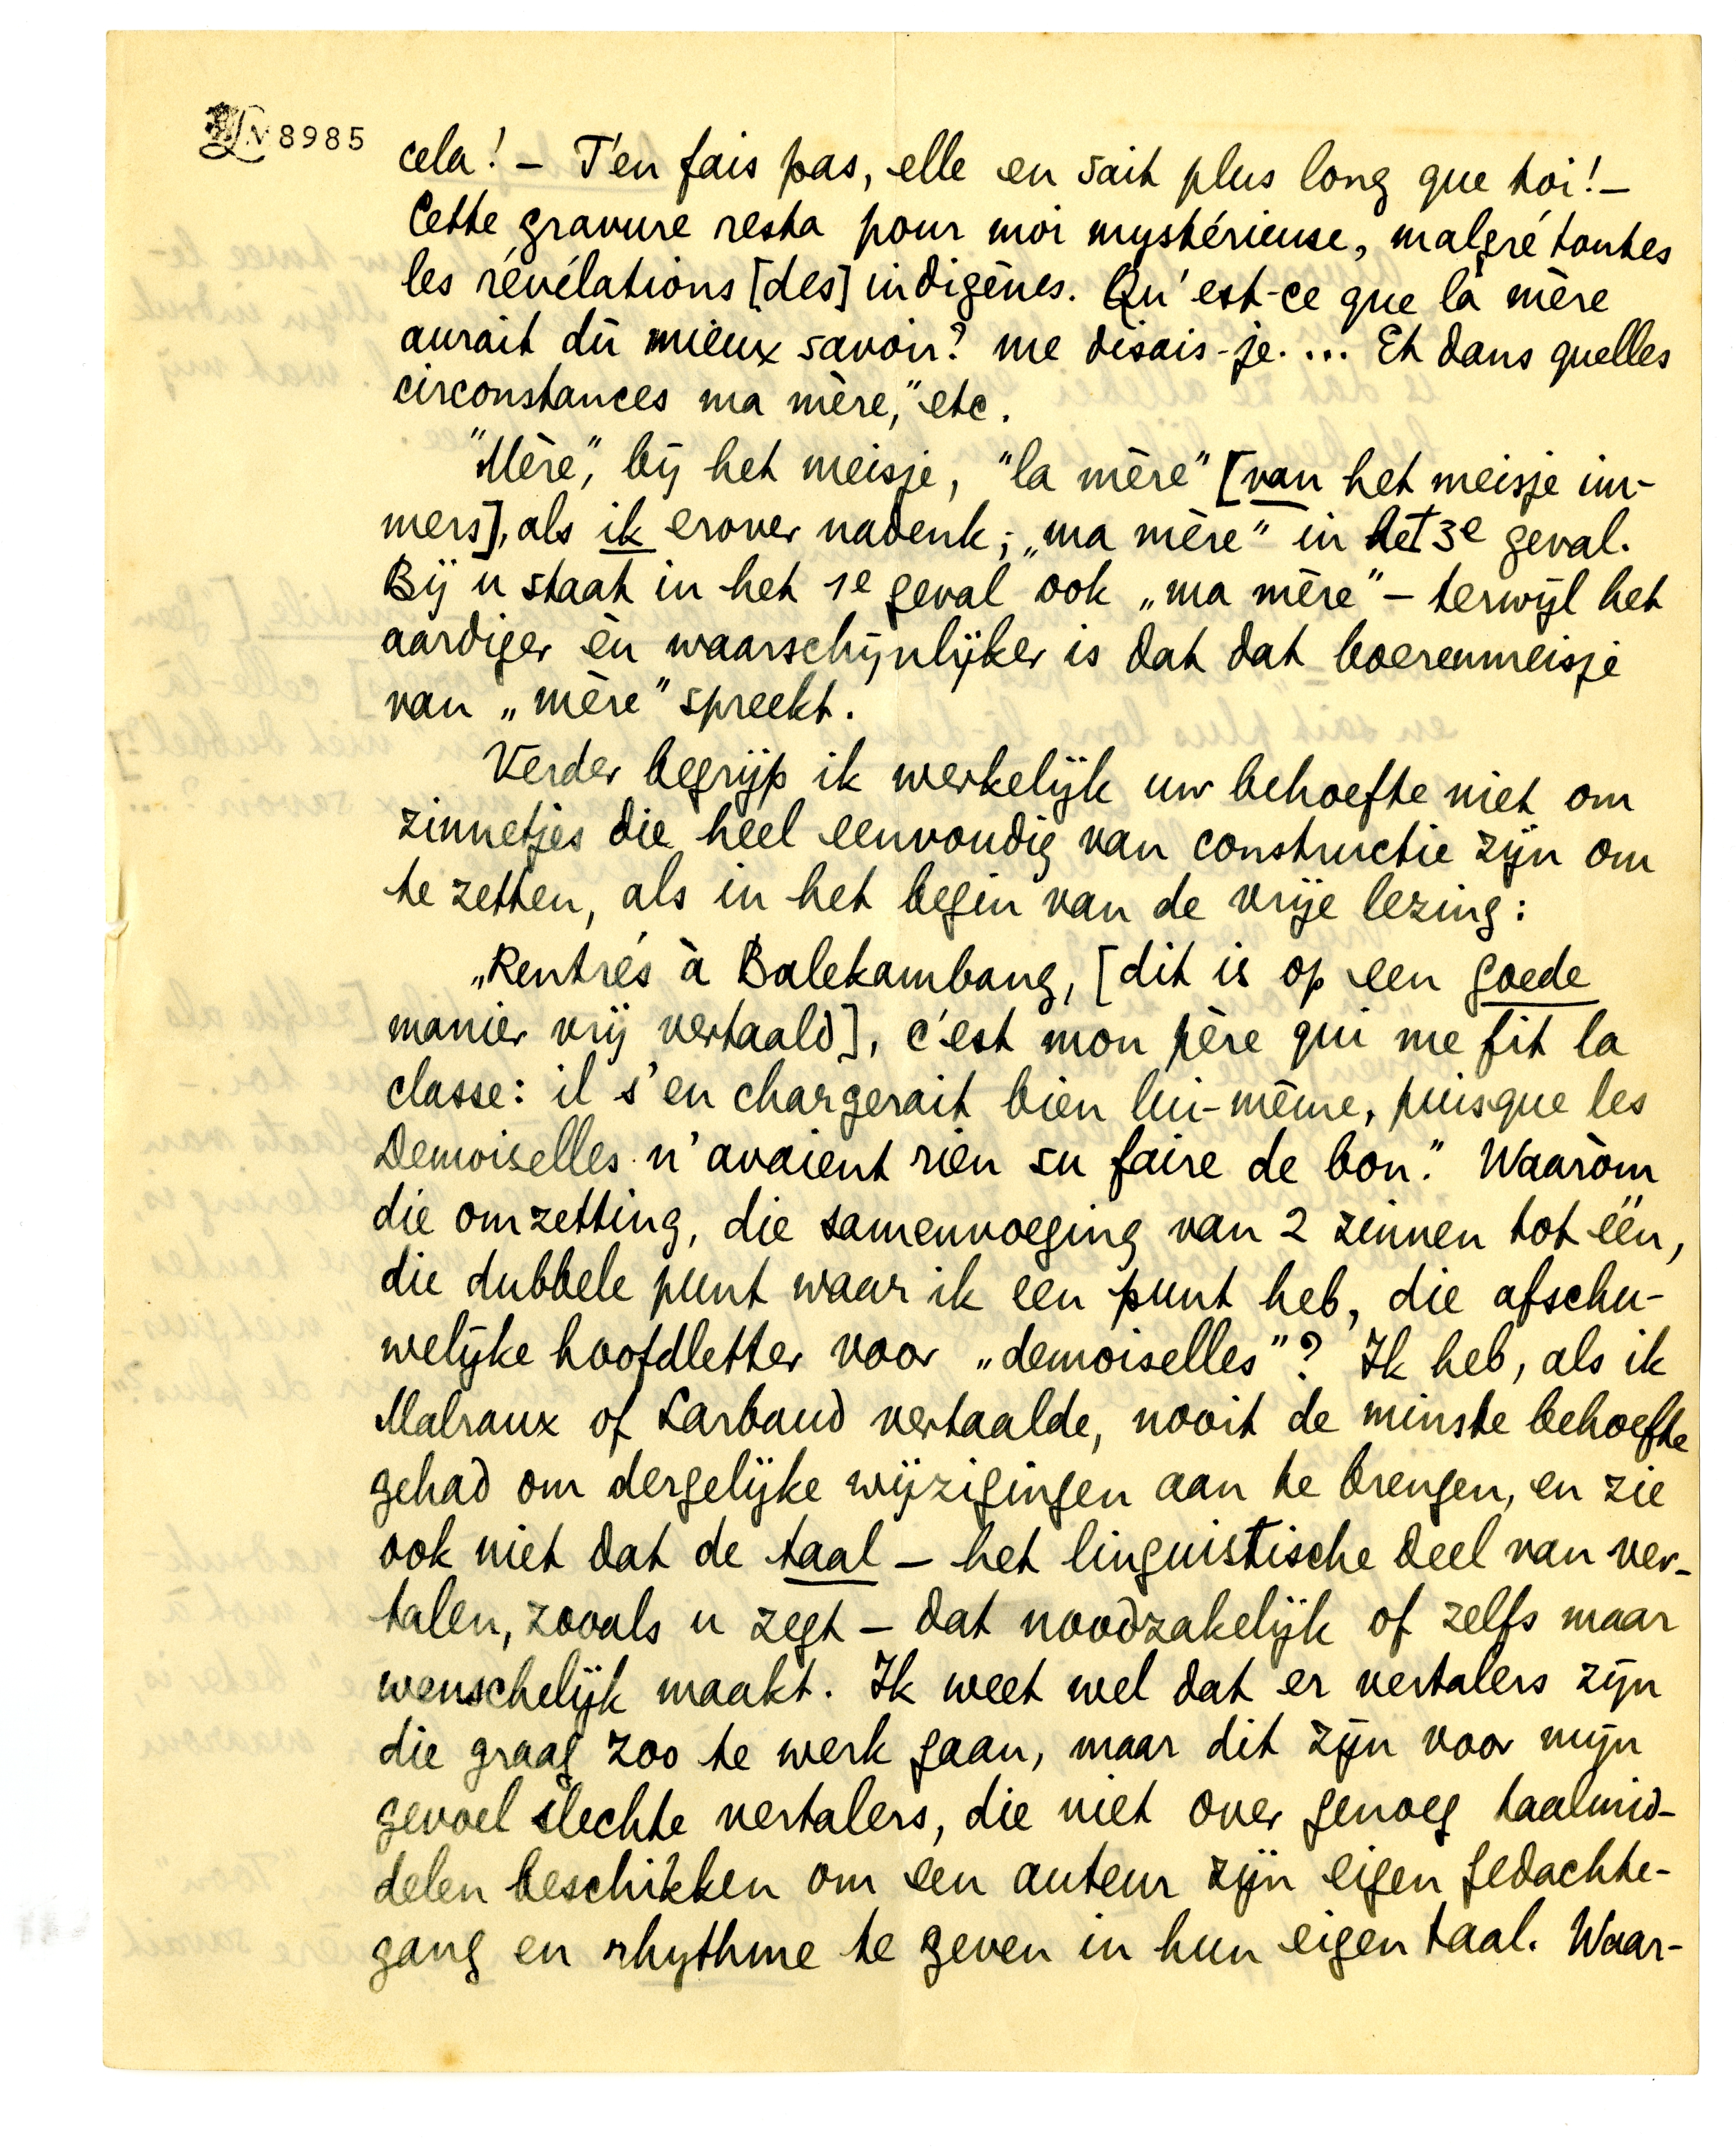 LM 8985
cela! – T'en fais pas, elle en sait plus long que toi! –
Cette gravure resta pour moi mystérieuse, malgré toutes
les révélations [des] indigènes. Qu'est-ce que la mère
aurait dû mieux savoir? me disais-je. ... Et dans quelles
circonstances ma mère," etc.
"Mère", bij het meisje, "la mère" [van het meisje im-
mers], als ik erover nadenk; „ma mère" in het 3e geval.
Bij u staat in het 1e geval ook „ma mère" – terwijl het
aardiger èn waarschijnlijker is dat dat boerenmeisje
van „mère" spreekt.
Verder begrijp ik werkelijk uw behoefte niet om
zinnetjes die heel eenvoudig van constructie zijn om
te zetten, als in het begin van de vrije lezing:
„Rentrés à Balekambang, [dit is op een goede
manier vrij vertaald], c'est mon père qui me fit la
classe: il s'en chargerait bien lui-même, puisque les
Demoiselles n'avaient rien su faire de bon." Waaròm
die omzetting, die samenvoeging van 2 zinnen tot één,
die dubbele punt waar ik een punt heb, die afschu-
welijke hoofdletter voor „demoiselles"? Ik heb, als ik
Malraux of Larbaud vertaalde, nooit de minste behoefte
gehad om dergelijke wijzigingen aan te brengen, en zie
ook niet dat de taal – het linguistische deel van ver-
talen, zooals u zegt – dat noodzakelijk of zelfs maar
wenschelijk maakt. Ik weet wel dat er vertalers zijn
die graag zoo te werk gaan, maar dit zijn voor mijn
gevoel slechte vertalers, die niet over genoeg taalmid-
delen beschikken om een auteur zijn eigen gedachte-
gang en rhythme te geven in hun eigen taal. Waar-